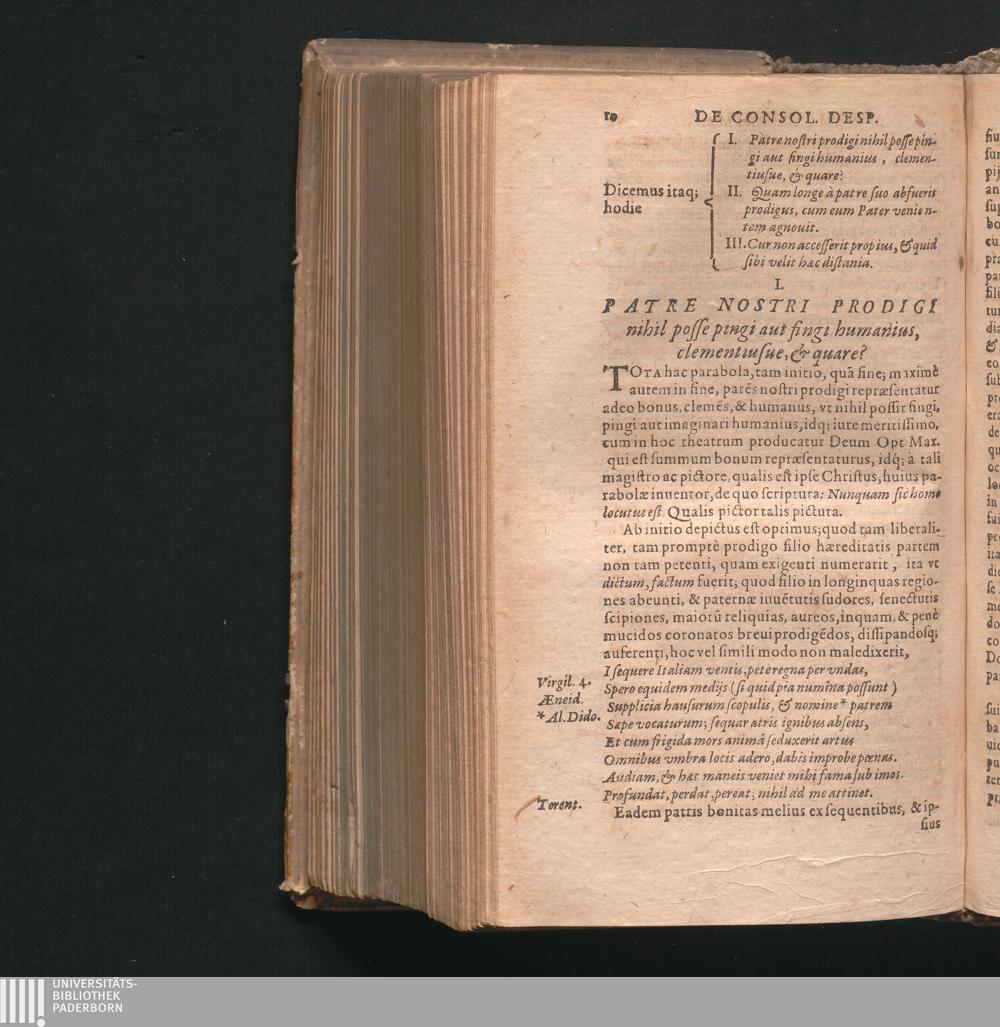 10 DE CONSOL. DESP.
I. Patre nostri prodigi nihil posse pin-
gi aut fingi humanius, clemen-
tiusue, & quare?
Dicemus itaq; hodie
II. Quam longe à patre suo abfuerit
prodigus, cum eum Pater venien-
tem agnouit.
III. Cur non accesserit propius, & quid
sibi velit hæc distania.
I.
PATRE NOSTRI PRODIGI
nihil posse pingi aut fingi humanius,
clementiusue, & quare?
TOTA hac parabola, tam initio, quã fine; maximè
autem in fine, parẽs nostri prodigi repræsentatur
adeo bonus, clemẽs, & humanus, vt nihil possit fingi,
pingi aut imaginari humanius, idq; iure meritissimo,
cum in hoc theatrum producatur Deum Opt Max.
qui est summum bonum repræsentaturus, idq́; à tali
magistro ac pictore, qualis est ipse Christus, huius pa-
rabolæ inuentor, de quo scriptura: Nunquam sic homo
locutus est. Qualis pictor talis pictura.
Ab initio depictus est optimus; quod tam liberali-
ter, tam promptè prodigo filio hæreditatis partem
non tam petenti, quam exigenti numerarit, ita vt
dictum, factum fuerit; quod filio in longinquas regio-
nes abeunti, & paternæ iuuẽtutis sudores, senectutis
scipiones, maiorũ reliquias, aureos, inquam, & penè
mucidos coronatos breui prodigẽdos, dissipandosq́;
auferenti, hoc vel simili modo non maledixerit,
I sequere Italiam ventis, pete regna per vndas,
Virgil. 4.
Spero equidem medijs (si quid pia numina possunt)
Æneid.
Supplicia hausurum scopulis, & nomine * patrem
* Al. Dido.
Sæpe vocaturum; sequar atris ignibus absens,
Et cum frigida mors animâ seduxerit artus
Omnibus vmbra locis adero, dabis improbe pœnas.
Audiam, & hæc maneis veniet mihi fama sub imos.
Terent.
Profundat, perdat, pereat; nihil ad me attinet.
Eadem patris bonitas melius ex sequentibus, & ip-
sius
UNIVERSITÄTS-
BIBLIOTHEK
PADERBORN